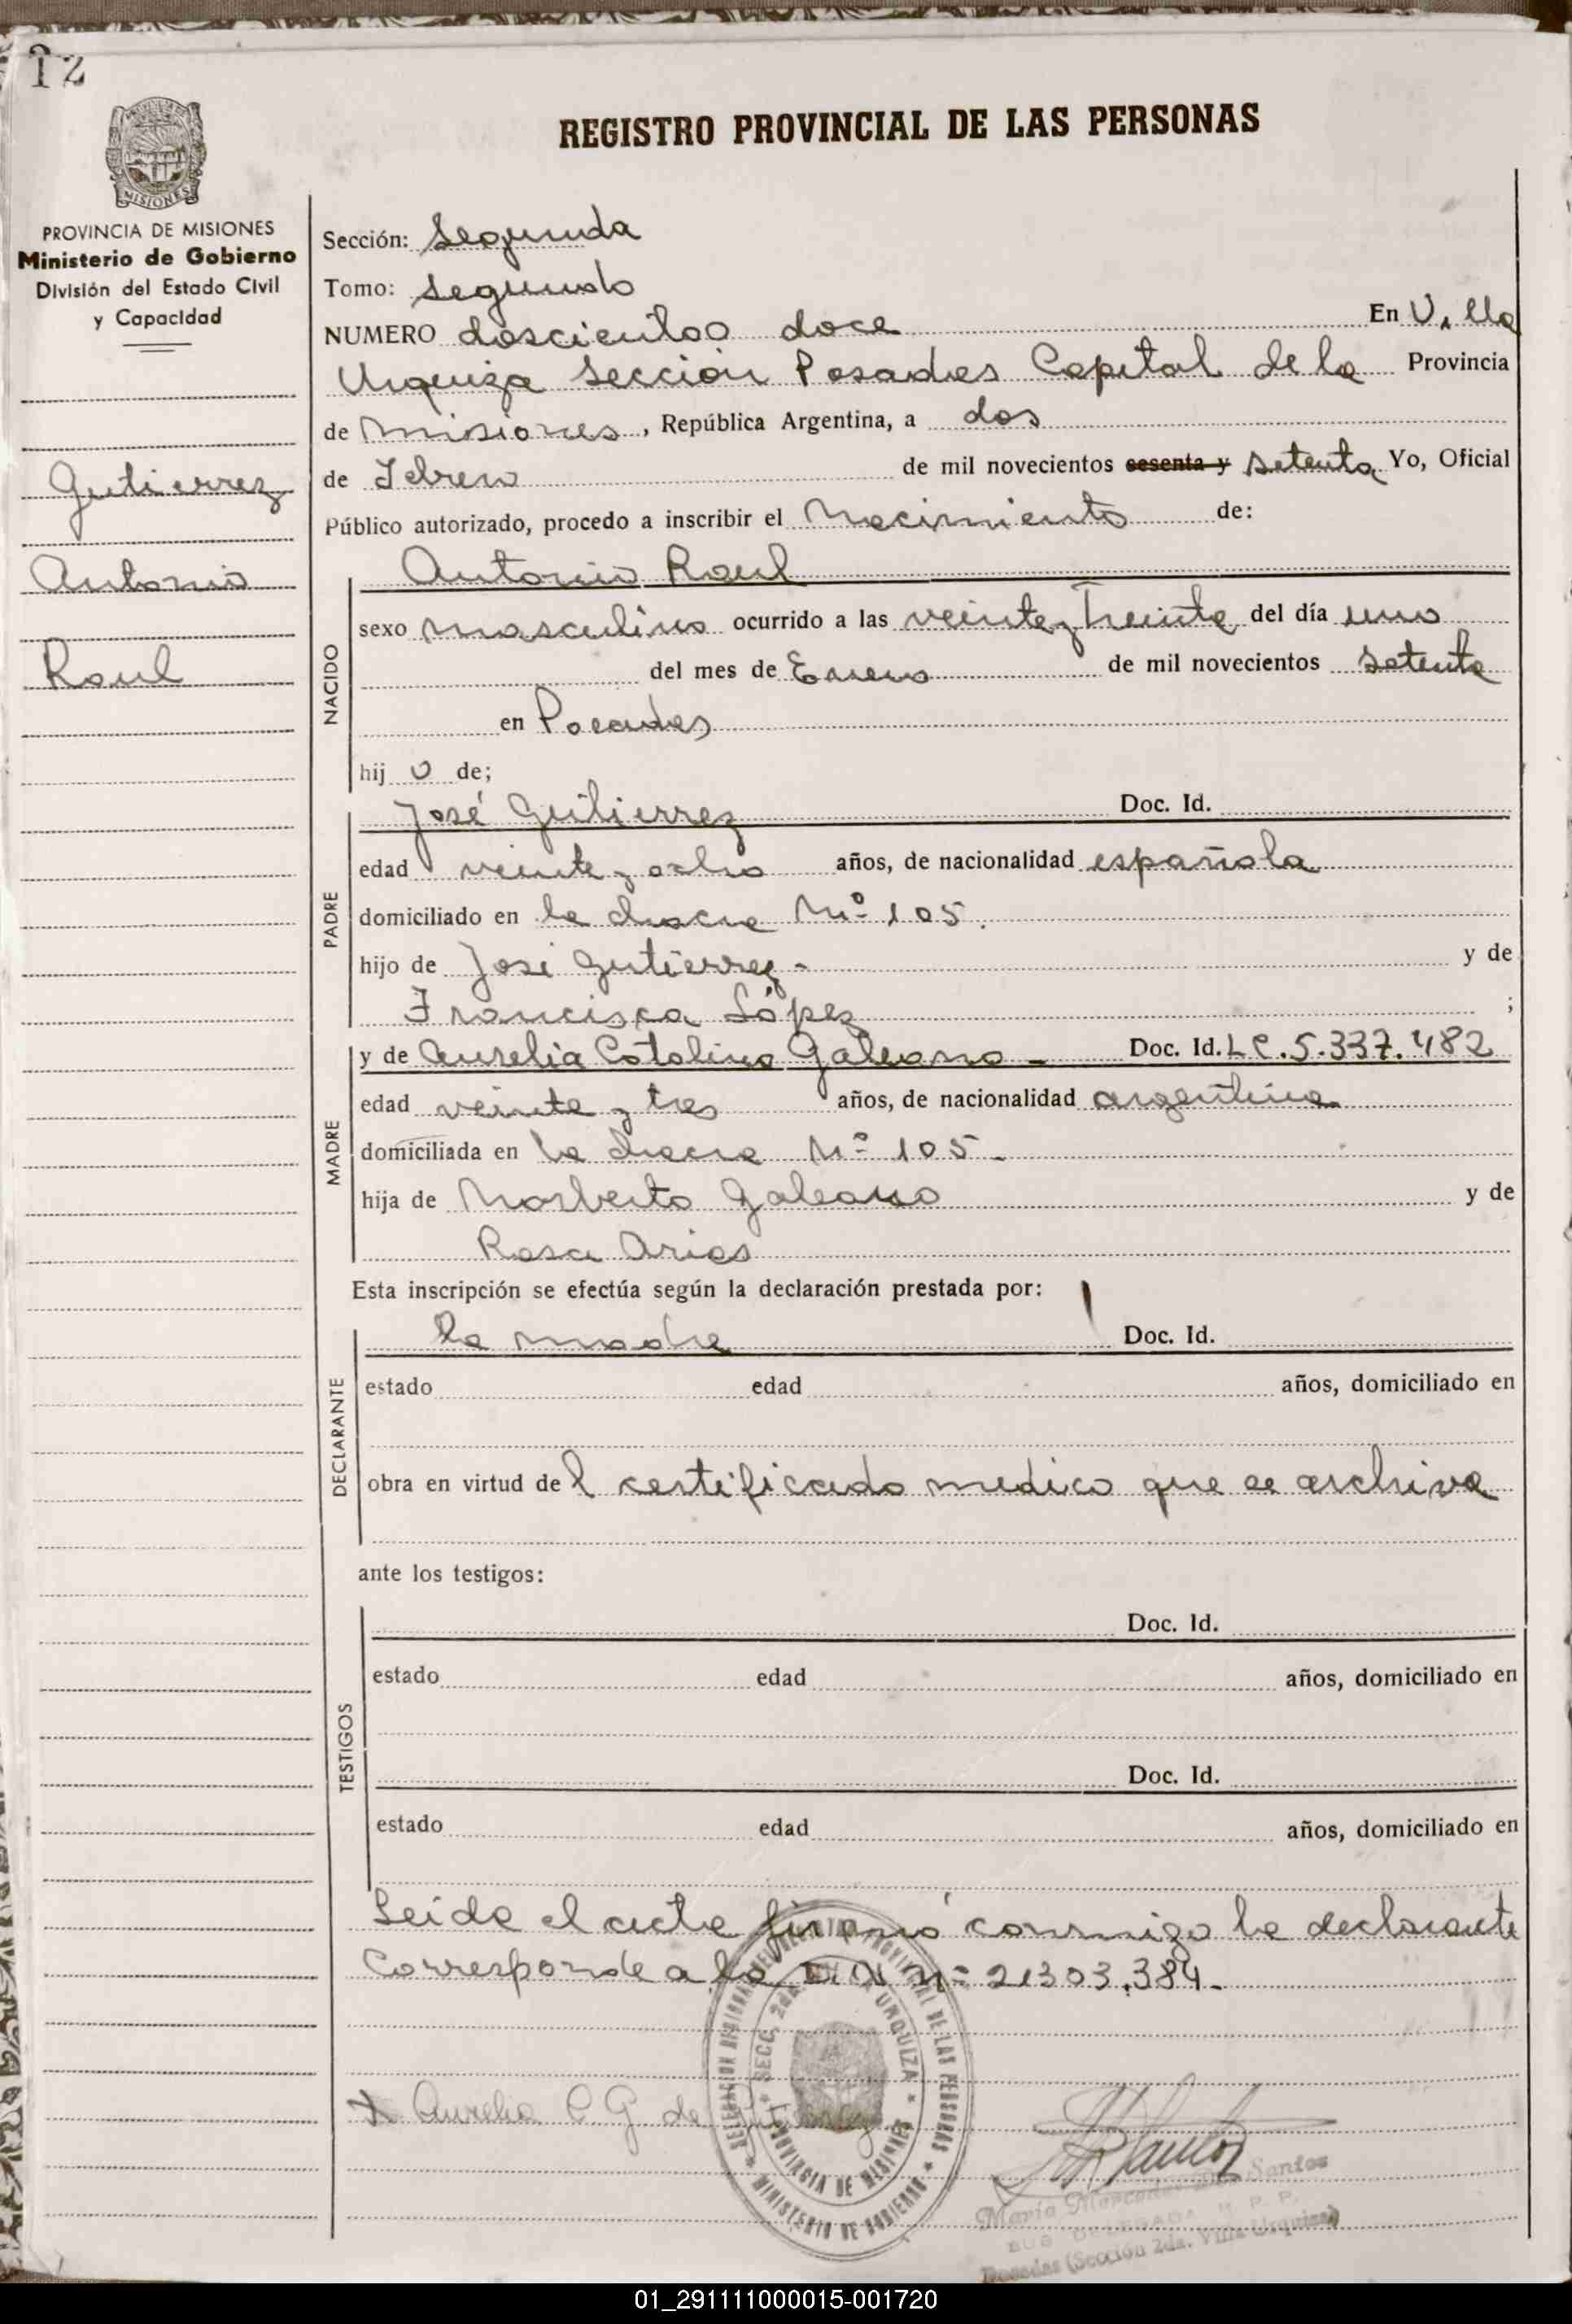 12
MISIONES
PROVINCIA DE MISIONES
Ministerio de Gobierno
División del Estado Civil
y Capacidad
Gutierrez
Antonio
Raul
REGISTRO PROVINCIAL DE LAS PERSONAS
Sección: Segunda
Tomo: Segundo
NUMERO doscientos doce En Villa
Urquiza Sección Posadas Capital de la Provincia
de Misiones, República Argentina, a dos
de Febrero de mil novecientos sesenta y setenta Yo, Oficial
Público autorizado, procedo a inscribir el Nacimiento de:
NACIDO
Antonio Raul
sexo masculino ocurrido a las veinte y treinta del día uno
del mes de Enero de mil novecientos setenta
en Posadas
hij o de;
PADRE
José Gutierrez Doc. Id.
edad veinte y ocho años, de nacionalidad española
domiciliado en la chacra Nº 105.
hijo de José Gutierrez - y de
Francisca López ;
MADRE
y de Aurelia Catalina Galeano - Doc. Id. L C. 5.337.482
edad veinte y tres años, de nacionalidad argentina
domiciliada en la chacra Nº 105 -
hija de Norberto Galeano y de
Rosa Arias
Esta inscripción se efectúa según la declaración prestada por:
DECLARANTE
la madre Doc. Id.
estado edad años, domiciliado en
obra en virtud de l certificado medico que se archiva
ante los testigos:
TESTIGOS
Doc. Id.
estado edad años, domiciliado en
Doc. Id.
estado edad años, domiciliado en
Leida el acta firmó conmigo la declarante
Corresponde a la Nº 21303.384-
Aurelia C G de
DE LAS PERSONAS
SECC. 2da. URQUIZA
PROVINCIA DE MISIONES
MINISTERIO DE GOBIERNO
María Mercedes Dos Santos
SUB DELEGADA
Posadas (Sección 2da. Villa Urquiza)
01_291111000015-001720